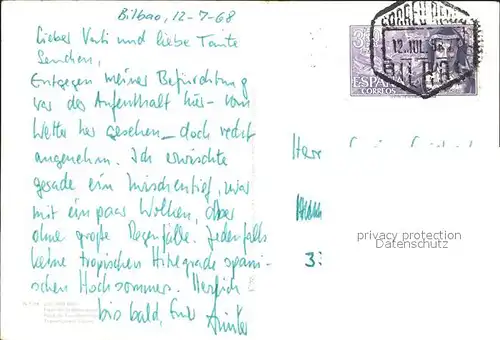 Bilbao, 12-7-68
Lieber Vati und liebe Tante
Entgegen meiner Befürchtung
war der Aufenthalt hier - vom
Wetter her gesehen - doch recht
angenehm. Ich erwischte
gerade ein Zwischentief, zwar
mit ein paar Wolken, aber
ohne große Regenfälle. Jedenfalls
keine tropischen Hitzegrade spani-
schen Hochsommers. Herzlich
bis bald, Euer
CORREO AEREO
12 JUL. 68
BILBAO
ESPAÑA
CORREOS
Herr
privacy protection
Datenschutz